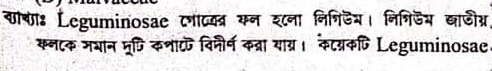 ব্যাখ্যাঃ Leguminosae গোত্রের ফল হলো লিগিউম। লিগিউম জাতীয়
ফলকে সমান দুটি কপাটে বিদীর্ণ করা যায়। কয়েকটি Leguminosae